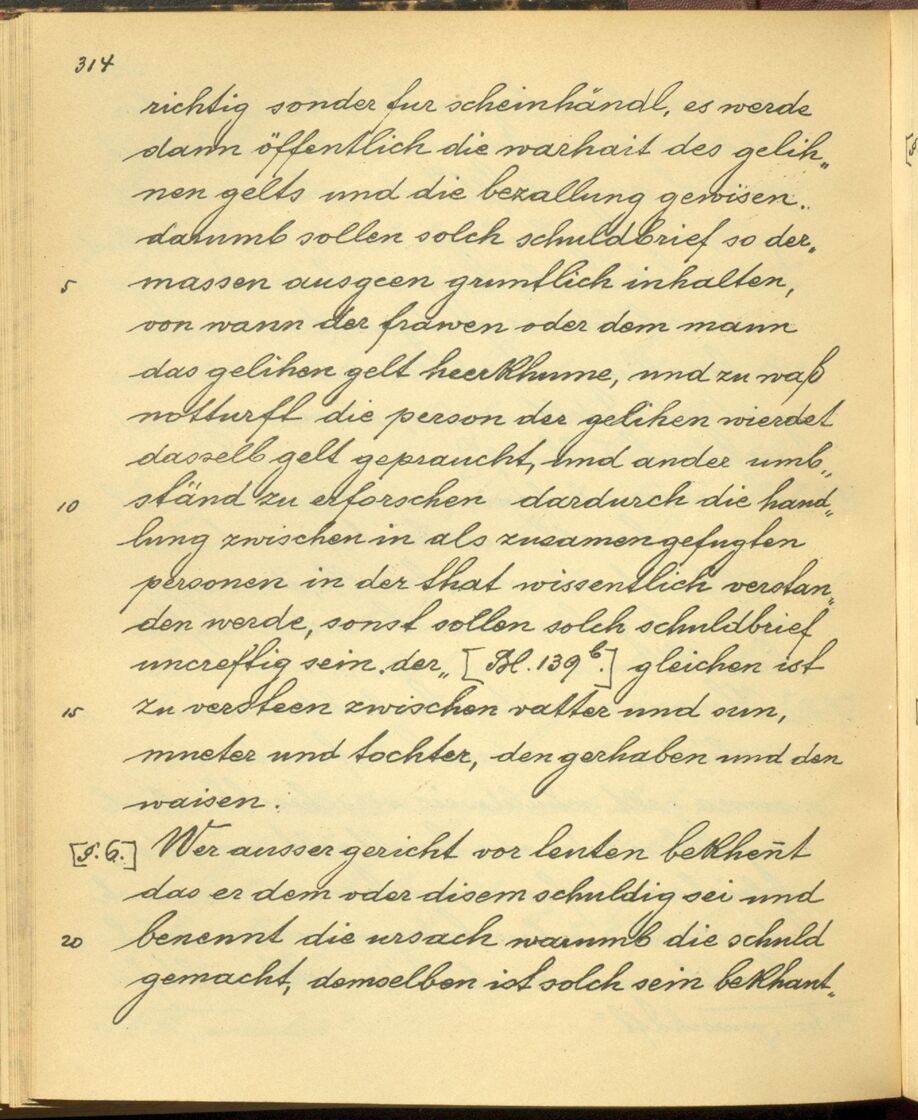 314
richtig sonder fur scheinhändl, es werde
dann öffentlich die warhait des gelih„
nen gelts und die bezallung gewisen.
darumb sollen solch schuldbrief so der„
5 massen ausgeen gruntlich inhalten,
von wann der frawen oder dem mann
das gelihen gelt heerkhume, und zu waß
notturft die person der gelihen wierdet
dasselb gelt gepraucht, und ander umb„
10 ständ zu erforschen dardurch die hand„
lung zwischen in als zusamengefugten
personen in der that wissentlich verstan„
den werde, sonst sollen solch schuldbrief
uncreftig sein. der„ [Bl. 139b.] gleichen ist
15 zu versteen zwischen vatter und sun,
mueter und tochter, den gerhaben und den
waisen.
[§. 6.] Wer ausser gericht vor leuten bekhen̄t
das er dem oder disem schuldig sei und
20 benennt die ursach warumb die schuld
gemacht, demselben ist solch sein bekhant„